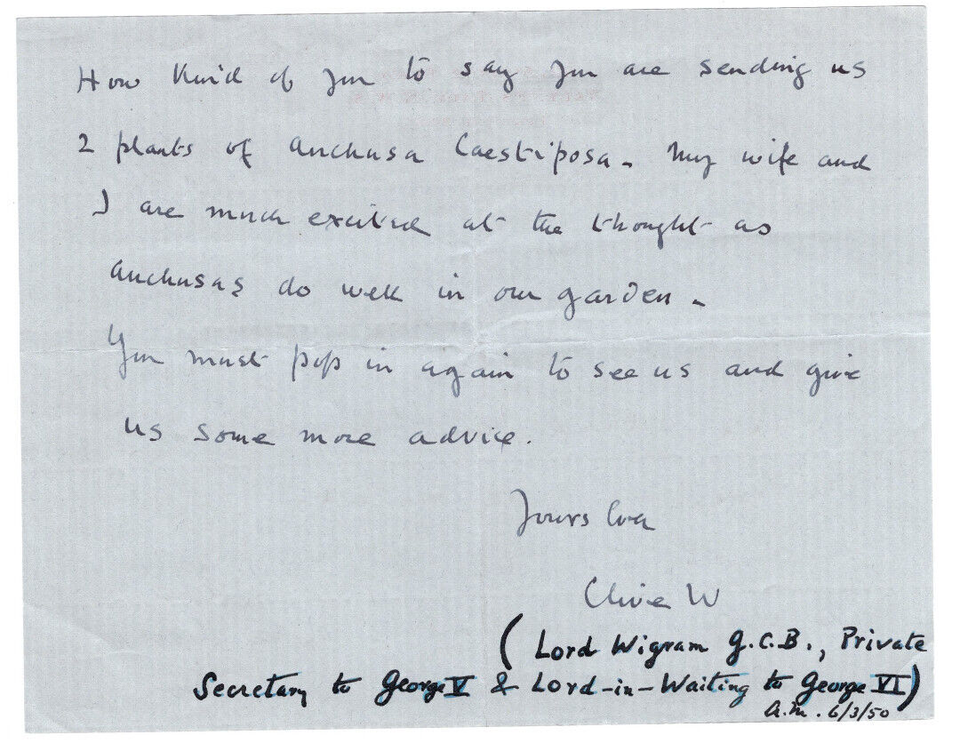 How kind of you to say you are sending us
2 plants of Anchusa Caestiposa. My wife and
I are much excited at the thought as
Anchusas do well in our garden.
You must pop in again to see us and give
us some more advice.
Yours Ever
Clive W
( Lord Wigram G.C.B., Private
Secretary to George V & Lord-in-Waiting to George VI )
A.M. 6/3/50